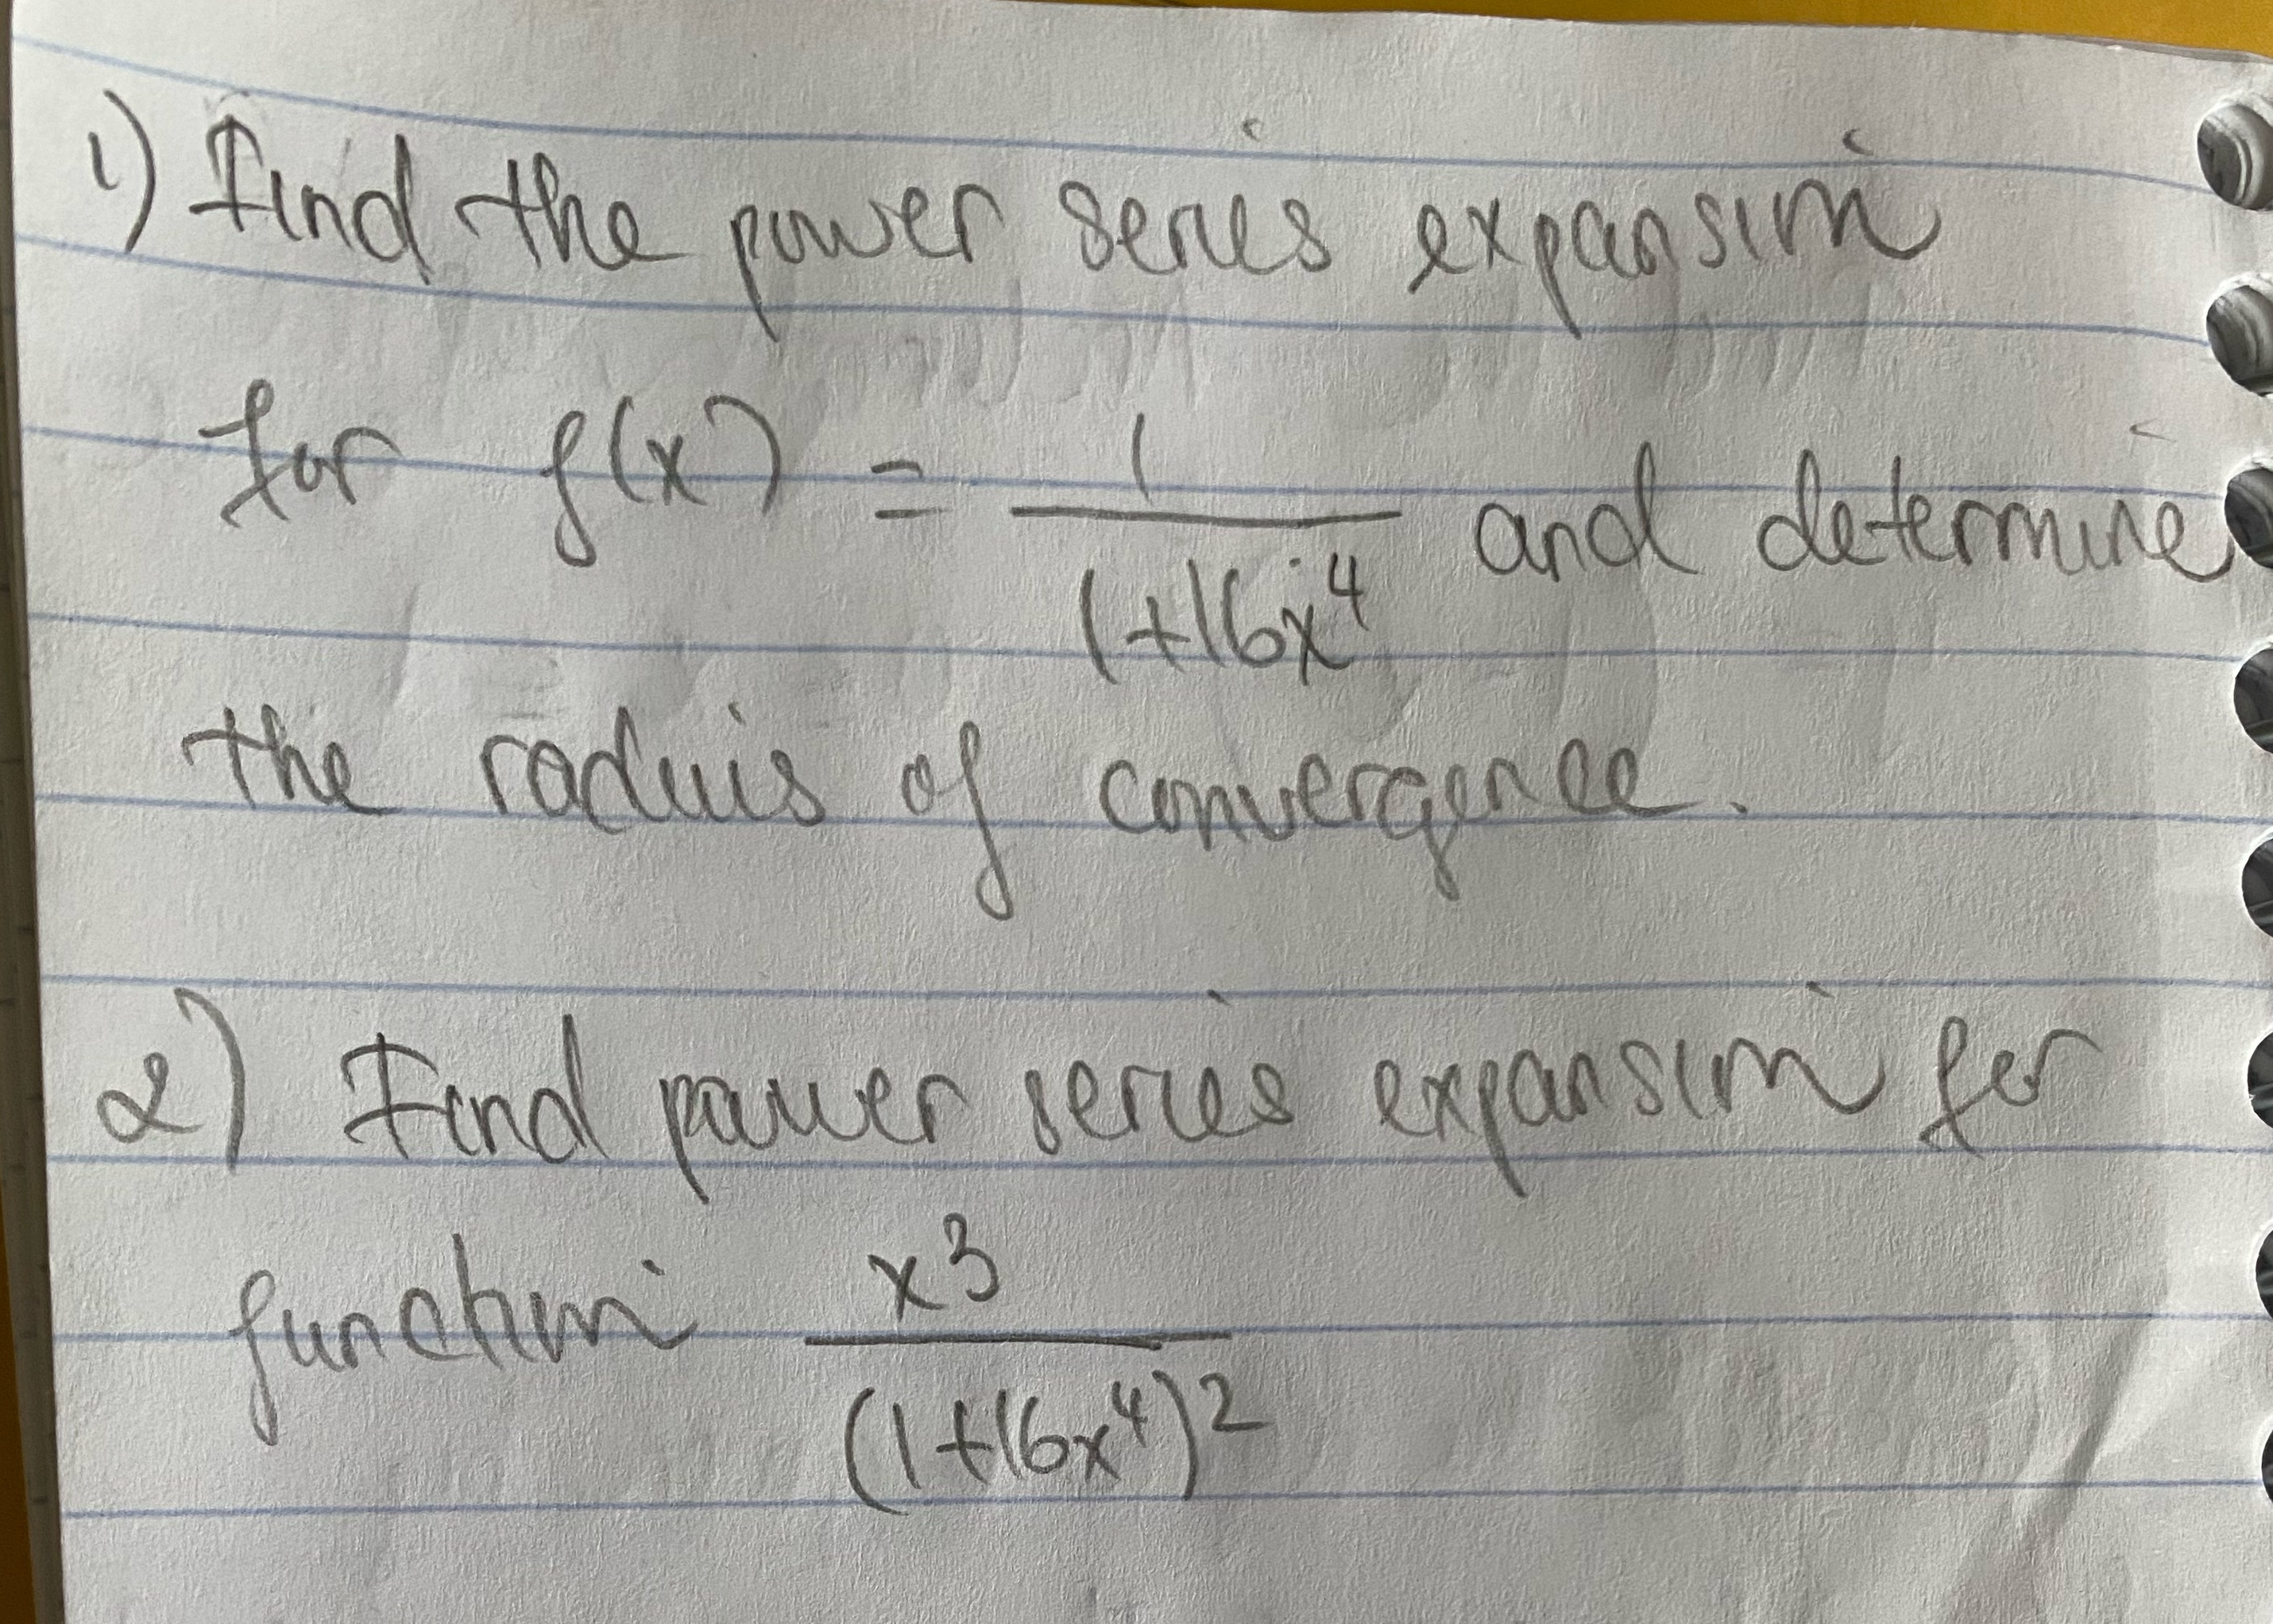 1) Find the power series expansion
for f(x) = 1/(1+16x⁴) and determine
the raduis of convergence.
2) Find power series expansion for
function x3/(1+16x⁴)2